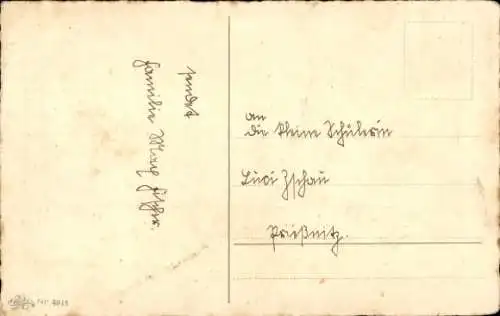 sendet
Familie Max Fischer.
an
die kleine Schülerin
Luci Zschau
Prießnitz.
Nr.